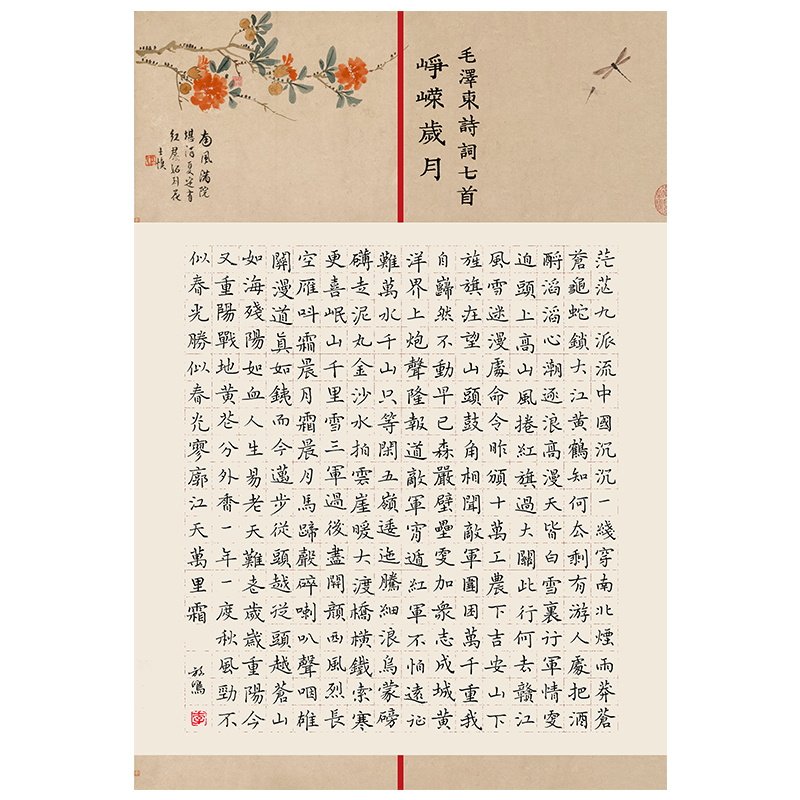 毛澤東詩詞七首
崢嶸歲月
南風滿院
茫茫九派流中國沉沉一綫穿南北煙雨莽蒼
蒼龜蛇鎖大江黃鶴知何去剩有游人處把酒
酹滔滔心潮逐浪高漫天皆白雪裏行軍情更
迫頭上高山風捲紅旗過大關此行何去贛江
風雪迷漫處命令昨頒十萬工農下吉安山下
旌旗在望山頭鼓角相聞敵軍圍困萬千重我
自巋然不動早已森嚴壁壘更加衆志成城黃
洋界上炮聲隆報道敵軍宵遁紅軍不怕遠征
難萬水千山只等閑五嶺逶迤騰細浪烏蒙磅
礴走泥丸金沙水拍雲崖暖大渡橋橫鐵索寒
更喜岷山千里雪三軍過後盡開顏西風烈長
空雁叫霜晨月霜晨月馬蹄聲碎喇叭聲咽雄
關漫道真如鐵而今邁步從頭越從頭越蒼山
如海殘陽如血人生易老天難老歲歲重陽今
又重陽戰地黃花分外香一年一度秋風勁不
似春光勝似春光寥廓江天萬里霜